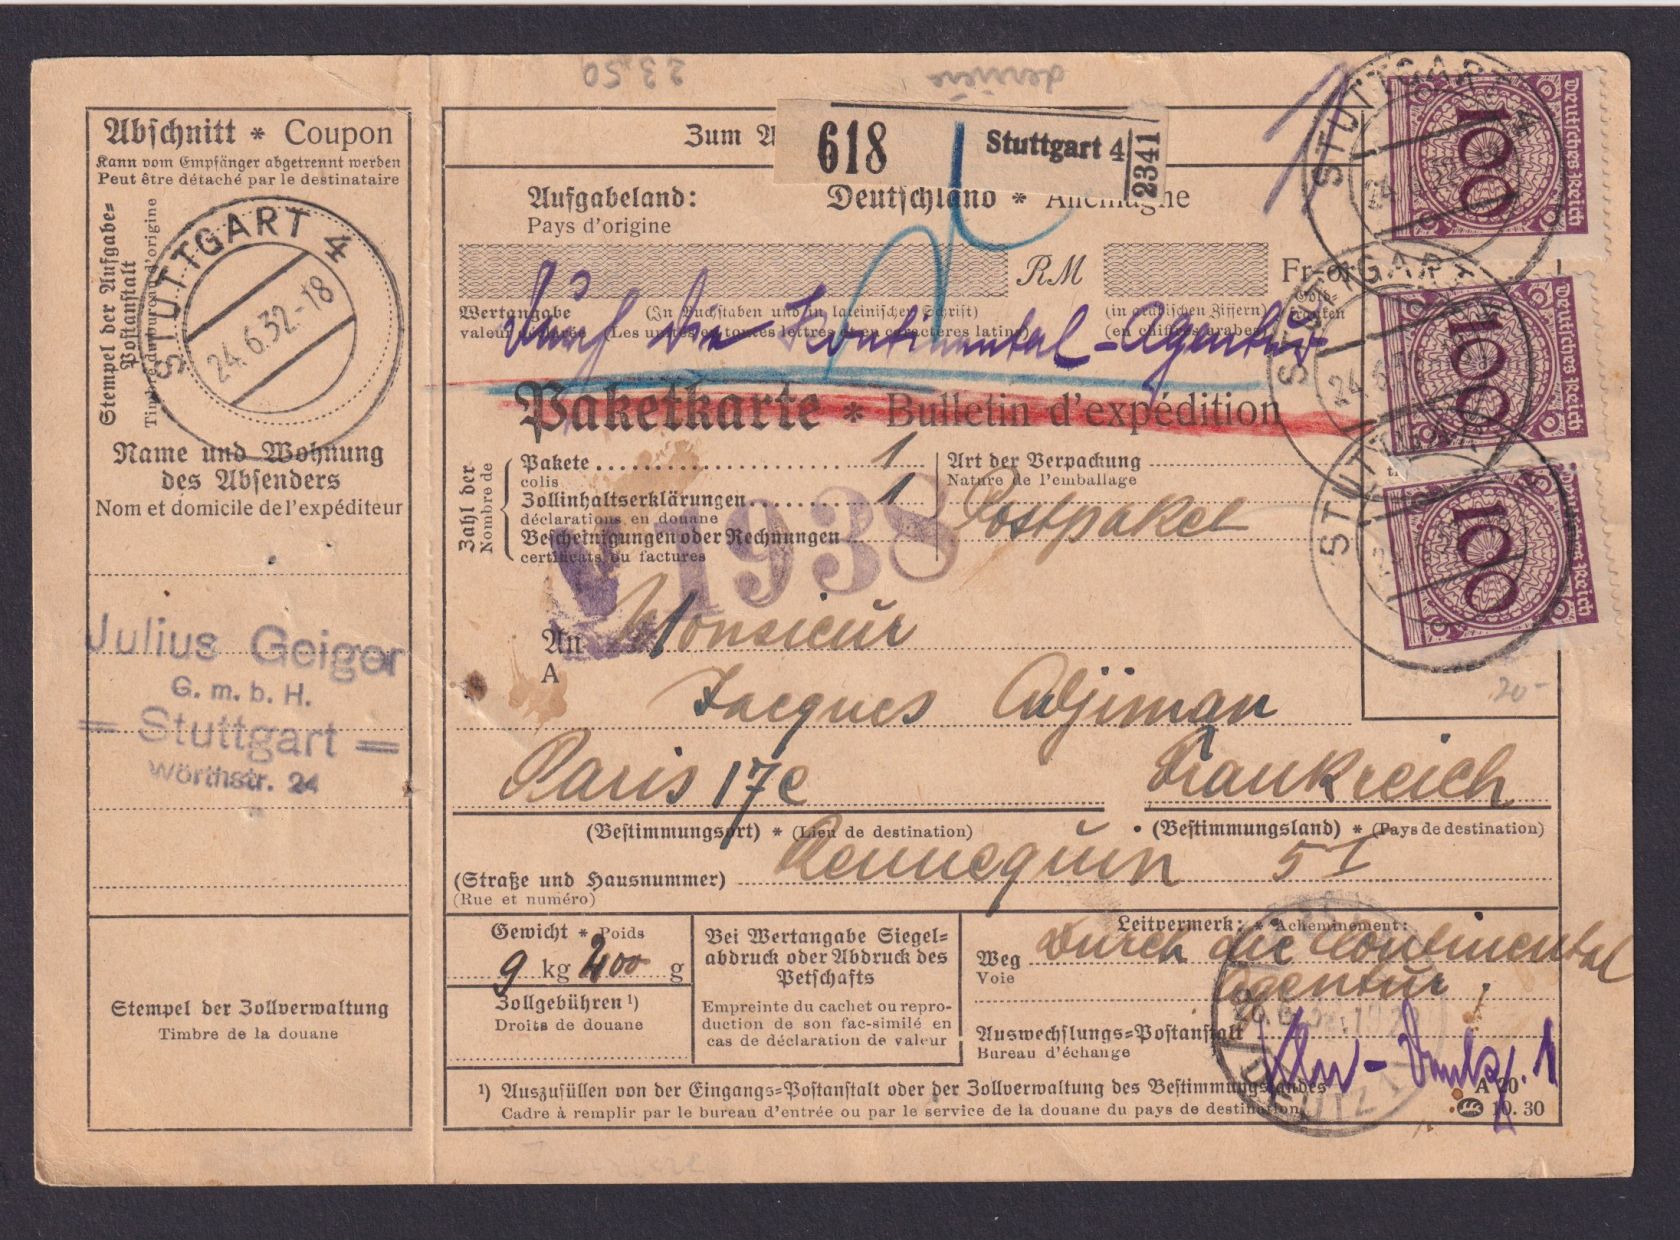 Abschnitt * Coupon
Kann vom Empfänger abgetrennt werden
Peut être détaché par le destinataire
Stempel der Aufgabe=
Postanstalt
Timbre du bureau d'origine
STUTTGART 4
24.6.32.-18
Name und Wohnung
des Absenders
Nom et domicile de l'expéditeur
Julius Geiger
G. m. b. H.
= Stuttgart =
Wörthstr. 24
Stempel der Zollverwaltung
Timbre de la douane
23.50
derrière
Zum A
618 Stuttgart 4
2341
Aufgabeland: Deutschland * Allemagne
Pays d'origine
RM Fr-or
Wertangabe (In Buchstaben und in lateinischer Schrift) (in arabischen Ziffern)
(Les unités en toutes lettres et en caractères latins) (en chiffres arabes)
Kontinental-Agentur
Paketkarte * Bulletin d'expédition
Zahl der
Nombre de
Pakete 1
colis
Zollinhaltserklärungen 1
déclarations en douane
Bescheinigungen oder Rechnungen
certificats ou factures
Art der Verpackung
Nature de l'emballage
Postpaket
1938
An Monsieur
A
Jacques Adjiman
Paris 17e Frankreich
(Bestimmungsort) * (Lieu de destination) (Bestimmungsland) * (Pays de destination)
Rennequin 51
(Straße und Hausnummer)
(Rue et numéro)
Gewicht * Poids
9 kg 400 g
Zollgebühren ¹)
Droits de douane
Bei Wertangabe Siegel=
abdruck oder Abdruck des
Petschafts
Empreinte du cachet ou repro-
duction de son fac-similé en
cas de déclaration de valeur
Leitvermerk: * Acheminement:
Weg Durch die Kontinental
Voie
Agentur
Auswechslungs=Postanstalt
Bureau d'échange
¹) Auszufüllen von der Eingangs=Postanstalt oder der Zollverwaltung des Bestimmungslandes
Cadre à remplir par le bureau d'entrée ou par le service de la douane du pays de destination
A 20
10. 30
STUTTGART
Deutsches Reich
100
STUTTGART
Deutsches Reich
100
STUTTGART
Deutsches Reich
100
20-